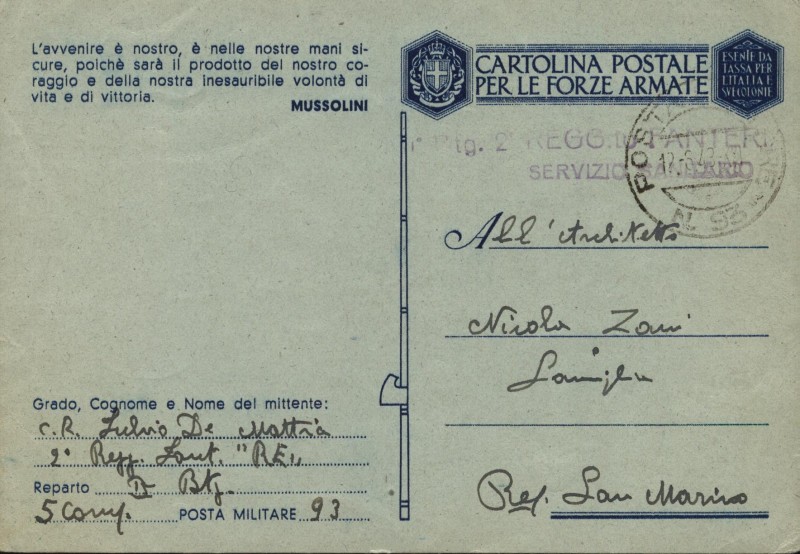 L'avvenire è nostro, è nelle nostre mani si-
cure, poichè sarà il prodotto del nostro co-
raggio e della nostra inesauribile volontà di
vita e di vittoria.
MUSSOLINI
CARTOLINA POSTALE
PER LE FORZE ARMATE
ESENTE DA
TASSA PER
L'ITALIA E
SVE COLONIE
Btg. 2° REGG. FANTERI
SERVIZIO SANITARIO
POSTA
N. 93
All'Architetto
Nicola Zani
Famiglia
Rep. San Marino
Grado, Cognome e Nome del mittente:
C.R. Fulvio De Mattia
2° Regg. Fant. "RE"
Reparto II Btg.
5 Comp. POSTA MILITARE 93